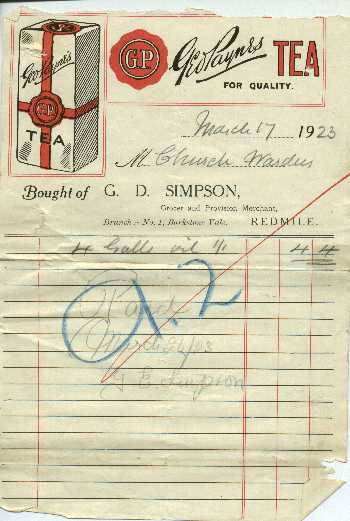 Geo Payne's
G.P
TEA
G.P
Geo Payne's TEA
FOR QUALITY.
March 17 1923
M Church Wardens
Bought of G. D. SIMPSON,
Grocer and Provision Merchant,
Branch :- No. 1, Barkstone Vale. REDMILE.
4 Galls oil 1/1 4 4
a.2
Paid
G D Simpson